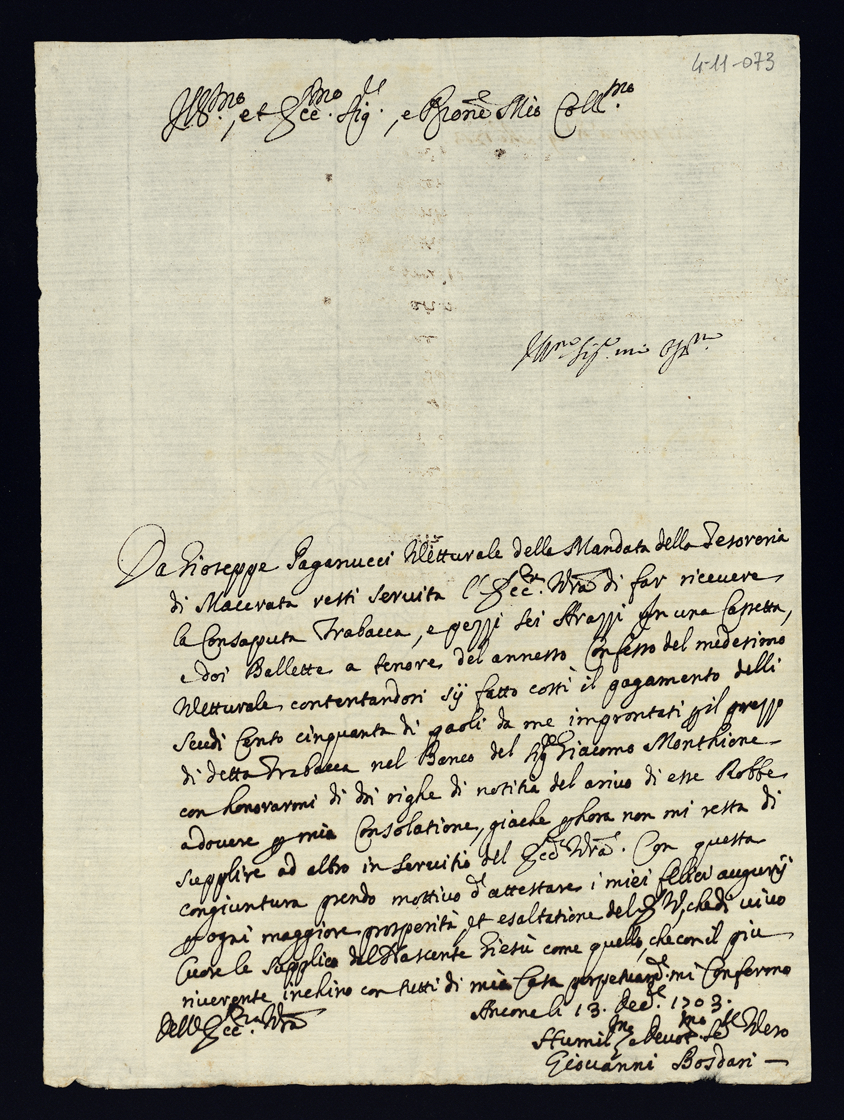 4-11-073
Ill.mo, et Ecc.mo Sig.re, e Prone Mio Coll.mo
Ill.mo Sig.r mio
Da Gioseppe Paganucci Vetturale della Mandata della Tesoreria
di Macerata resti seruita l'Ecc.za Vra di far riceuere
la Consapputa Trabacca, e pezzi sei Arazzi in una Cassetta,
e doi Ballette a tenore del annesso Confesso del medesimo
Vetturale contentandosi sij fatto costì il pagamento delli
Scudi Cento cinquanta di paoli da me improntati p il prezzo
di detta Trabacca nel Banco del Sig. Giacomo Monthione
con honorarmi di doi righe di notitia del ariuo di esse Robbe
a douere p mia Consolatione, giache p hora non mi resta di
supplire ad altro in seruitio del Ecc.za Vra. Con questa
congiuntura prendo mottiuo d'attestare i miei felici augurij
p ogni maggiore prosperità, et esaltatione del E V, che di uiuo
Cuore le supplico dal Nascente Giesù come quello, che con il più
riuerente inchino con tutti di mia Casa perpetuam.te mi Confermo
Ancona li 13. Dec.e 1703.
Dell'Ecc.za Vra
Humil.mo e Deuot.mo Se.re Vero
Giouanni Bosdari